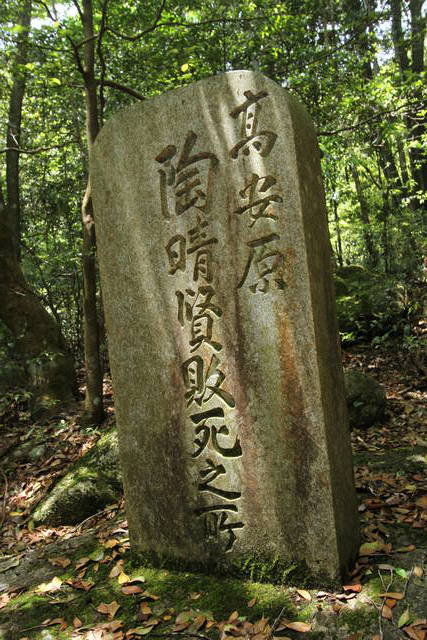 高安原
陶晴賢敗死之所